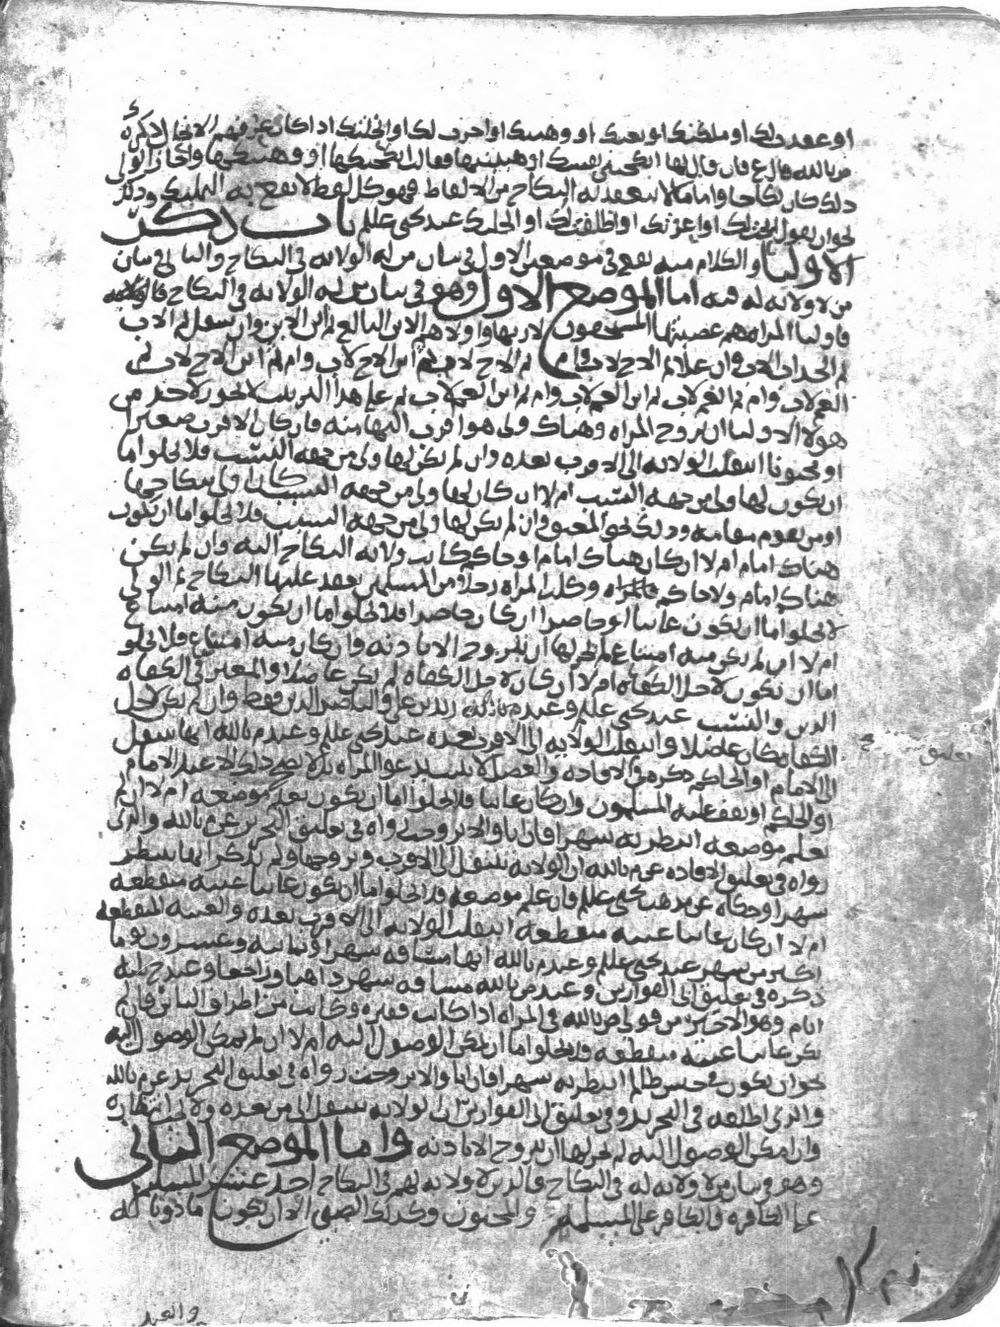 او عقدت لك او ملكتك او بعتك او وهبتك او اجزت لك او انحلتك اذا كان عرفهم الانحال ذكره
م بالله قال ع فان قال لها انكحيني نفسك او هبينيها فقالت انكحتكها او وهبتكها واجاز الولي
ذلك كان نكاحا واما ما لا ينعقد به النكاح من الالفاظ فهو كل لفظ لا يقع به التمليك وذلك
نحو ان يقول ابحتك او اعرتك او اطلقت لك او احللتك عند يحيى علم باب ذكر
الاوليا والكلام منه يقع في موضعين الاول في بيان من له الولاية في النكاح والثاني في بيان
من لا ولاية له فيه اما الموضع الاول وهو في بيان من له الولاية في النكاح
فاوليا المراه هم عصبتها المستحقون لارثها واولاهم الابن البالغ ثم ابن الابن وان سفل ثم الاب
ثم الجد اب الاب وان علا ثم الاخ لاب وام ثم الاخ لاب ثم ابن الاخ لاب وام ثم ابن الاخ لاب ثم
العم لاب وام ثم العم لاب ثم ابن العم لاب وام ثم ابن العم لاب ثم على هذا الترتيب لا يجوز لاحد من
هولا الاوليا ان يزوج المراه وهناك ولي هو اقرب اليها منه فان كان الاقرب صغيرا
او مجنونا انتقلت الولاية الى الاقرب بعده وان لم يكن لها ولي من جهة النسب فلا يخلوا اما
ان يكون لها ولي من جهة السبب ام لا ان كان لها ولي من جهة السبب كان اولى بنكاحها
او من يقوم مقامه وذلك نحو المعتق وان لم يكن لها ولي من جهة السبب فلا يخلوا اما ان يكون
هناك امام ام لا ان كان هناك امام او حاكم كانت ولاية النكاح اليه وان لم يكن
هناك امام ولا حاكم فللمراه وكلت المراه رجلا من المسلمين يعقد عليها النكاح ثم الولي
لا يخلوا اما ان يكون غائبا او حاضرا ان كان حاضرا فلا يخلوا اما ان يكون منه امتناع
ام لا ان لم يكن منه امتناع لم يجز لها ان تتزوج الا باذنه وان كان منه امتناع فلا يخلو
اما ان يكون لاجل الكفاه ام لا ان كان لاجل الكفاه لم يكن عاضلا والمعتبر في الكفاه
الدين والنسب عند يحيى علم وعند زيد بن علي والناصر الدين فقط وان لم يكن لاجل
الكفا كان عاضلا وانتقلت الولاية الى الاقرب بعده عند يحيى علم وعند م بالله انها تنتقل
الى الامام او الحاكم ذكره في الافاده والعضل لا يثبت بدعوا المراه بل لا يصح ذلك الا عند الامام
او الحاكم او يقف عليه المسلمون وان كان غائبا فلا يخلوا اما ان يكون يعلم موضعه ام لا ان لم
يعلم موضعه انتظر به شهرا فان ابا والا تزوجت رواه في تعليق التحرير عن م بالله والذي
رواه في تعليق الافاده عن م بالله ان الولاية تنتقل الى الاقرب ويزوجها ولم يذكر انها تنتظر
شهرا وحكاه عن مذهب يحيى علم فان علم موضعه فلا يخلوا اما ان يكون غائبا غيبة منقطعه
ام لا ان كان غائبا غيبه منقطعه انتقلت الولاية الى الاقرب بعده والغيبه المنقطعه
اكثر من شهر عند يحيى علم وعند م بالله انها مسافه شهر او ثمانيه وعشرون يوما
ذكره في تعليق ابن الفوارس وعند ص بالله مسافه شهر ذاهبا وراجعا وعند ح ثلثه
ايام وهو الاخير من قولي ص بالله في المراه اذا كانت فقيره وكانت من اطراف الناس فان لم
يكن غائبا غيبه منقطعه فلا يخلوا اما ان يمكن الوصول اليه ام لا ان لم يمكن الوصول اليه
نحو ان يكون في حبس ظالم انتظر به شهرا فان ابا والا تزوجت رواه في تعليق التحرير عن م بالله
والذي اطلقه في التحرير وفي تعليق ابن الفوارس ان الولايه تنتقل الى من بعده ولا ينتظر
وان امكن الوصول اليه لم يجز لها ان تزوج الا باذنه واما الموضع الثاني
وهو في بيان من لا ولاية له في النكاح فالذين لا ولاية لهم في النكاح احد عشر المسلم
على الكافره والكافر على المسلمه والمجنون وكذلك الصبي الا ان يكون ماذونا له
والعبد